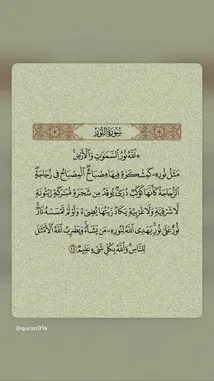 سُورَةُ النُّورِ
۞ ٱللَّهُ نُورُ ٱلسَّمَٰوَٰتِ وَٱلْأَرْضِۚ
مَثَلُ نُورِهِۦ كَمِشْكَوٰةٍ فِيهَا مِصْبَاحٌۖ ٱلْمِصْبَاحُ فِي زُجَاجَةٍۖ
ٱلزُّجَاجَةُ كَأَنَّهَا كَوْكَبٌ دُرِّيٌّ يُوقَدُ مِن شَجَرَةٍ مُّبَٰرَكَةٍ زَيْتُونَةٍ
لَّا شَرْقِيَّةٍ وَلَا غَرْبِيَّةٍ يَكَادُ زَيْتُهَا يُضِيٓءُ وَلَوْ لَمْ تَمْسَسْهُ نَارٌۚ
نُّورٌ عَلَىٰ نُورٍۗ يَهْدِي ٱللَّهُ لِنُورِهِۦ مَن يَشَآءُۚ وَيَضْرِبُ ٱللَّهُ ٱلْأَمْثَٰلَ
لِلنَّاسِۗ وَٱللَّهُ بِكُلِّ شَيْءٍ عَلِيمٌ ٣٥
@quran91k